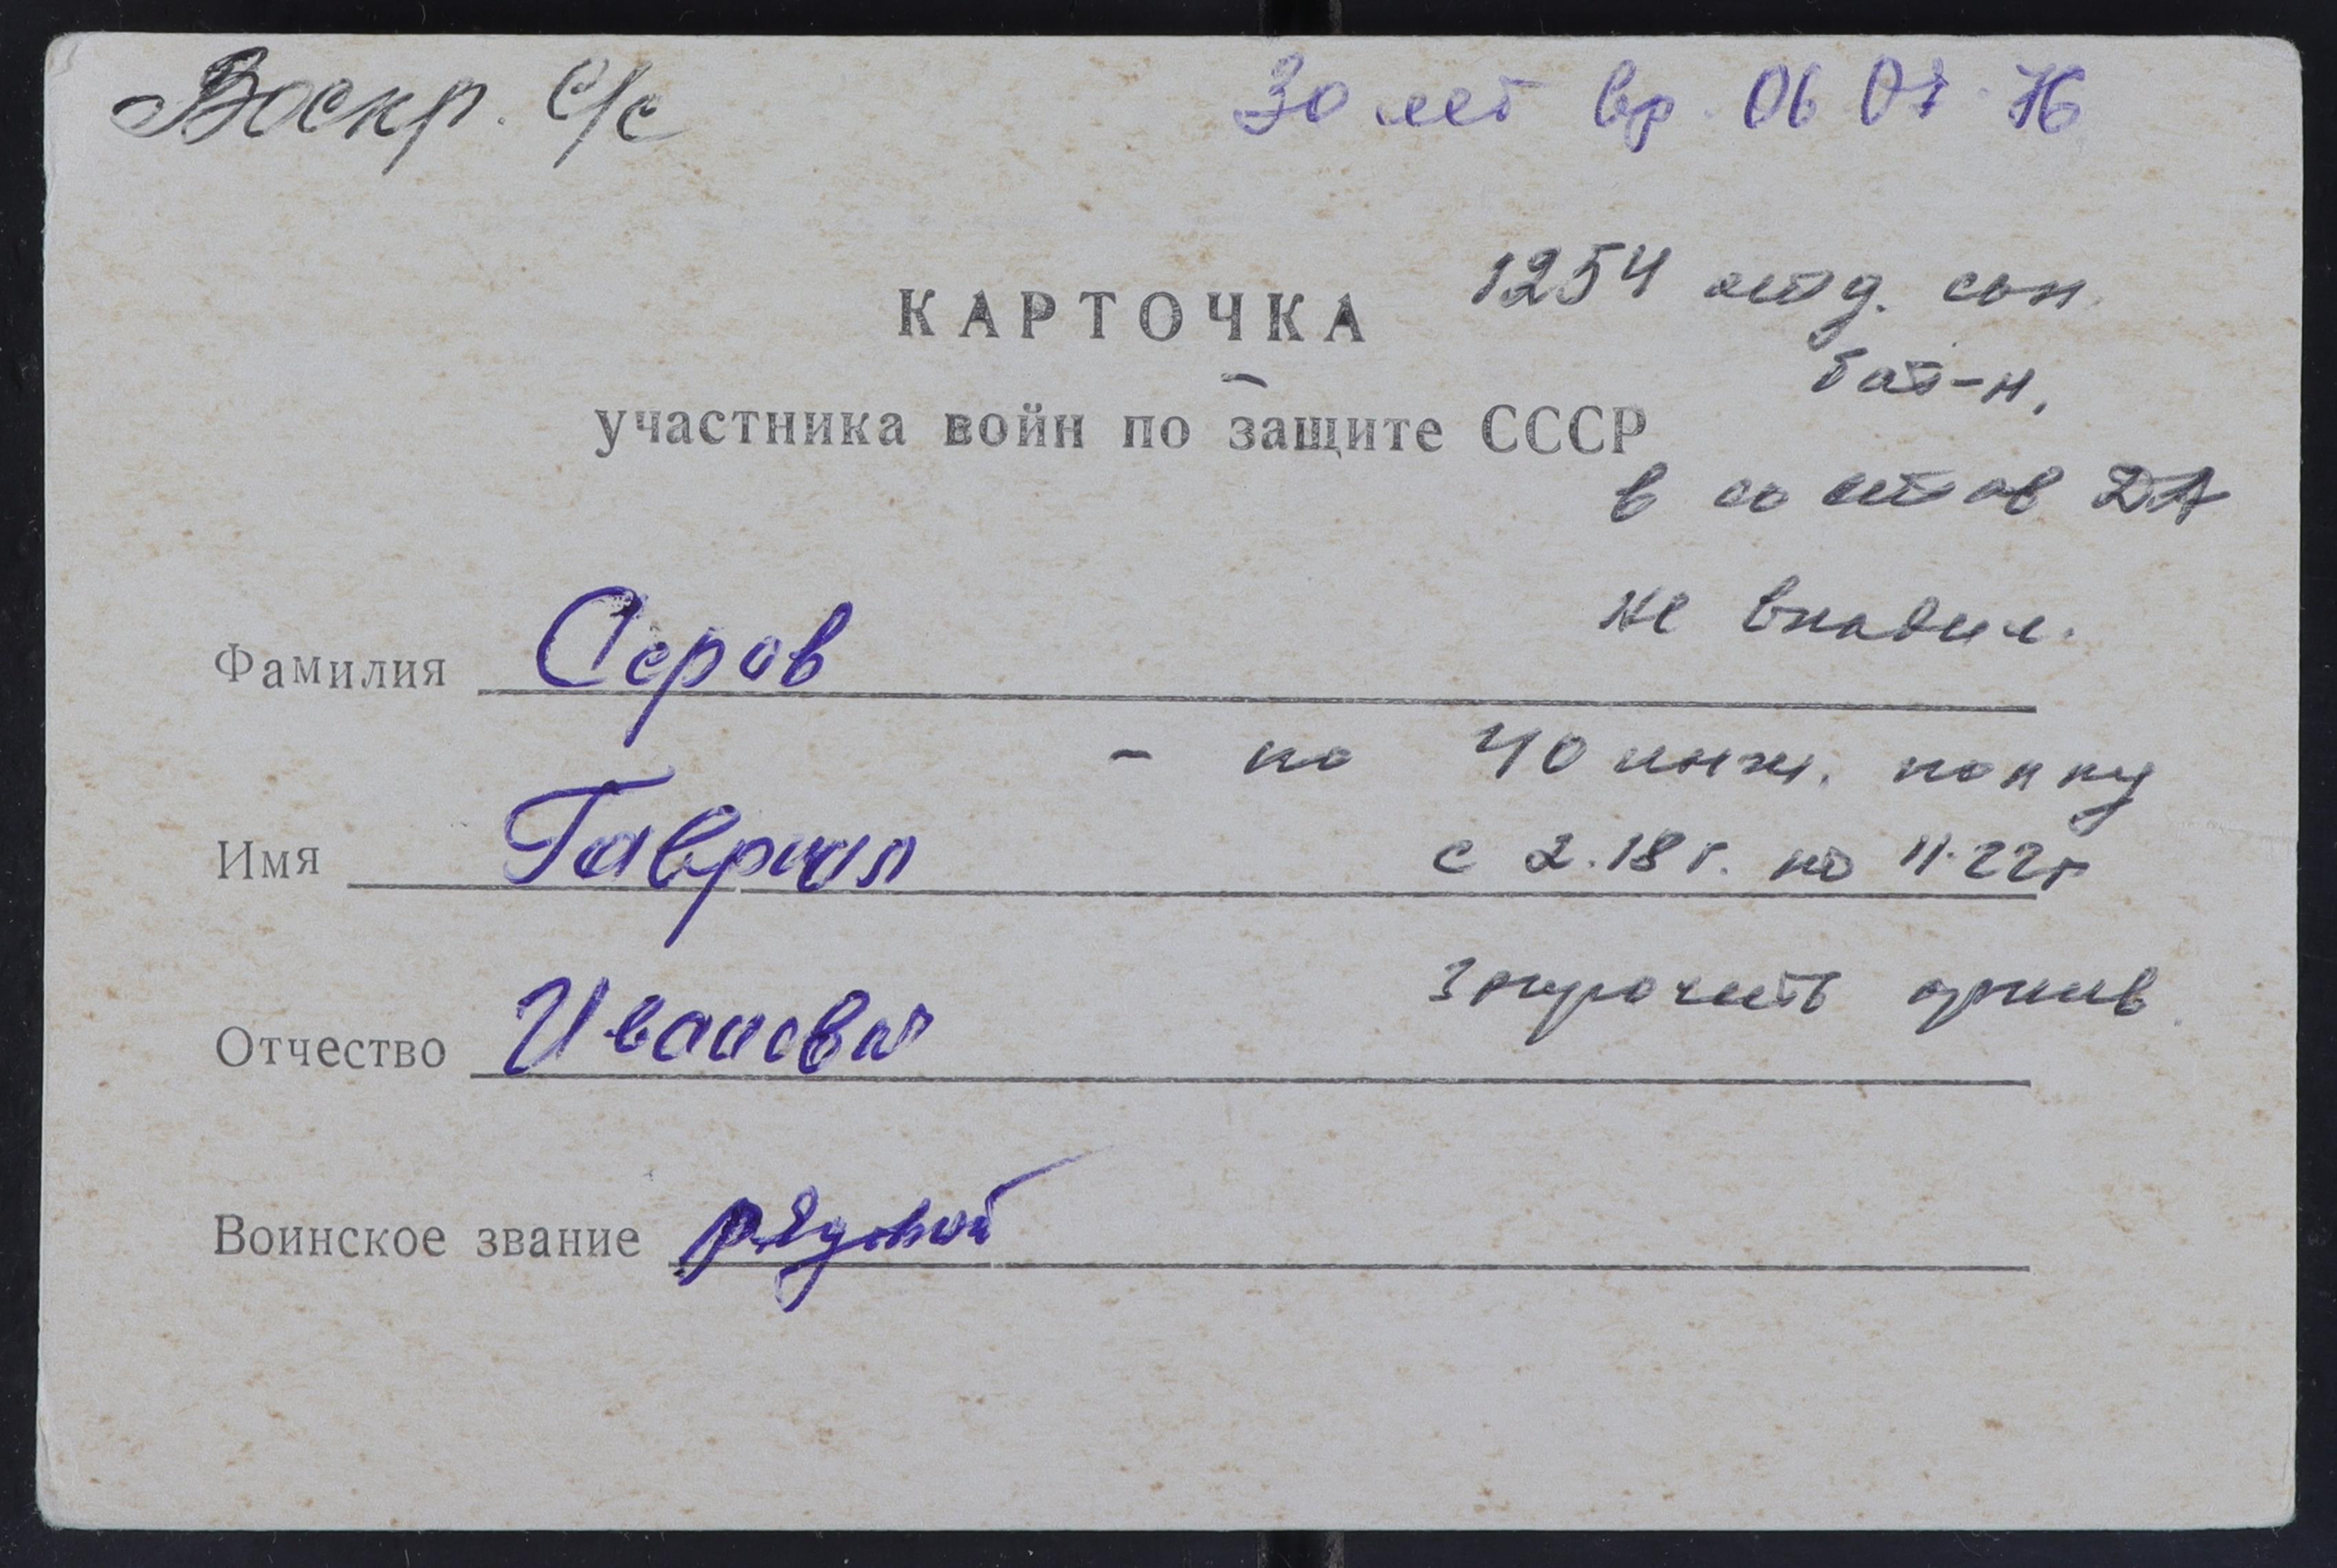 Воскр. с/с
30 лет вр. 06 07 76
1254 отд. сап.
КАРТОЧКА
бат-н.
участника войн по защите СССР
в состав ДА
не входил.
Фамилия Серов
- по 40 инж. полку
Имя Гавриил
с 2.18 г. по 11.22 г
запросить архив
Отчество Иванович
Воинское звание рядовой